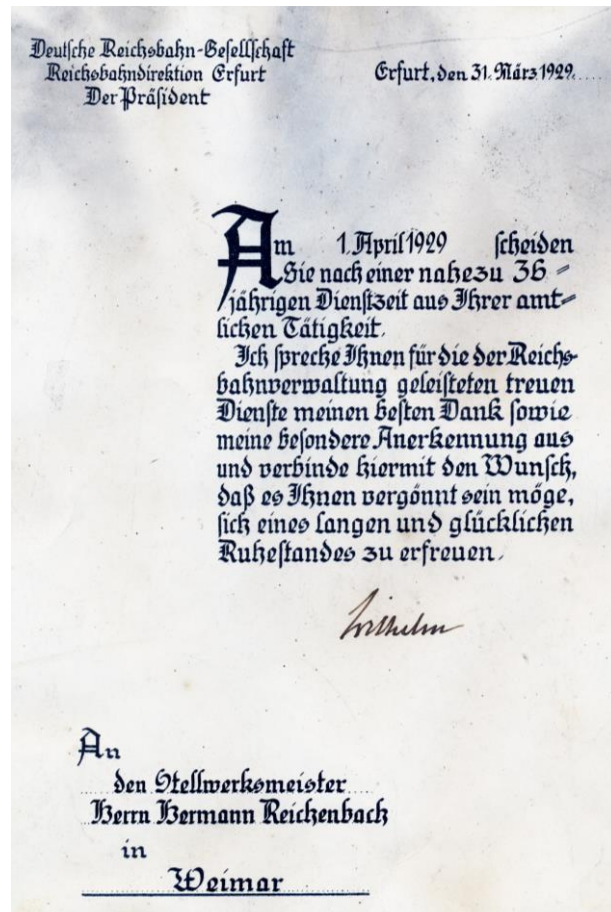 Deutsche Reichsbahn-Gesellschaft
Reichsbahndirektion Erfurt
Der Präsident
Erfurt, den 31. März 1929.
Am 1. April 1929 scheiden
Sie nach einer nahezu 36-
jährigen Dienstzeit aus Ihrer amt-
lichen Tätigkeit.
Ich spreche Ihnen für die der Reichs-
bahnverwaltung geleisteten treuen
Dienste meinen besten Dank sowie
meine besondere Anerkennung aus
und verbinde hiermit den Wunsch,
daß es Ihnen vergönnt sein möge,
sich eines langen und glücklichen
Ruhestandes zu erfreuen.
Wilhelm
An
den Stellwerksmeister
Herrn Hermann Reichenbach
in
Weimar